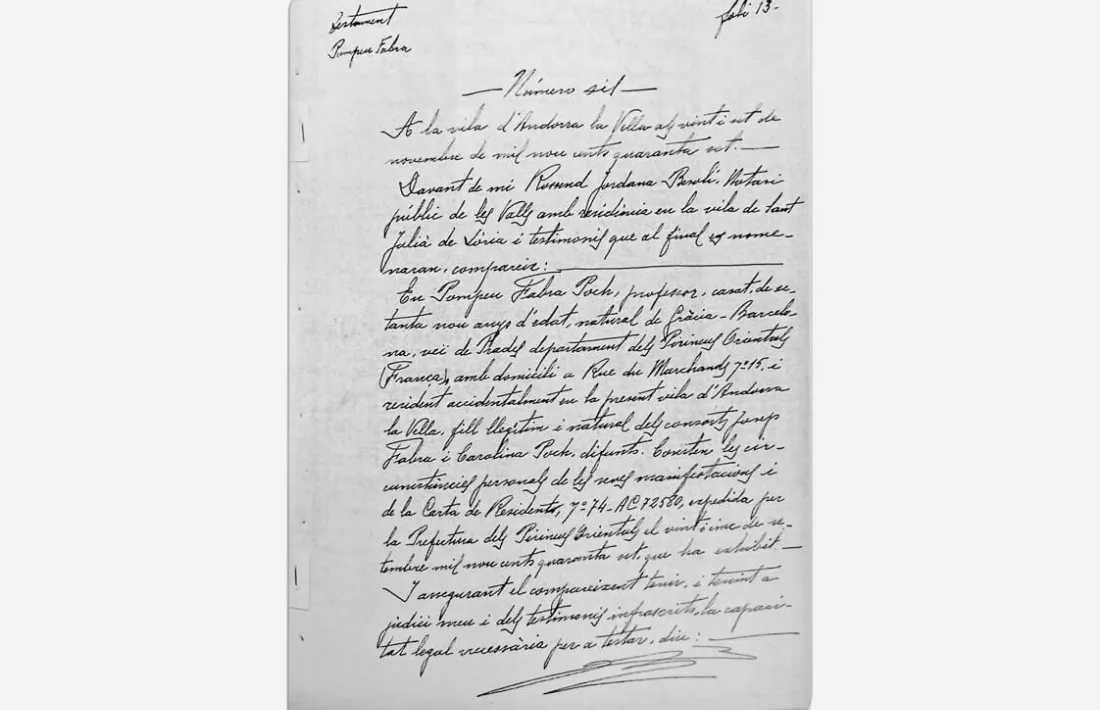 Testament
Pompeu Fabra
foli 13.
— Número sis —
A la vila d'Andorra la Vella als vint i set de
novembre de mil nou cents quaranta set. —
Davant de mi Rossend Jordana Besolí, Notari
públic de les Valls amb residència en la vila de Sant
Julià de Lòria i testimonis que al final es nome-
naran, compareix: —
En Pompeu Fabra Poch, professor, casat, de se-
tanta nou anys d'edat, natural de Gràcia - Barcelo-
na, veí de Prades departament dels Pirineus Orientals
(França), amb domicili a Rue du Marchands nº 15, i
resident accidentalment en la present vila d'Andorra
la Vella, fill llegítim i natural dels consorts Josep
Fabra i Carolina Poch, difunts. Consten les cir-
cunstàncies personals de les seves manifestacions i
de la Carta de Residents, nº 74-AC72580, expedida per
la Prefectura dels Pirineus Orientals el vint i cinc de se-
tembre mil nou cents quaranta set, que ha exhibit. —
I assegurant el compareixent tenir, i tenint a
judici meu i dels testimonis infrascrits, la capaci-
tat legal necessària per a testar, diu: —